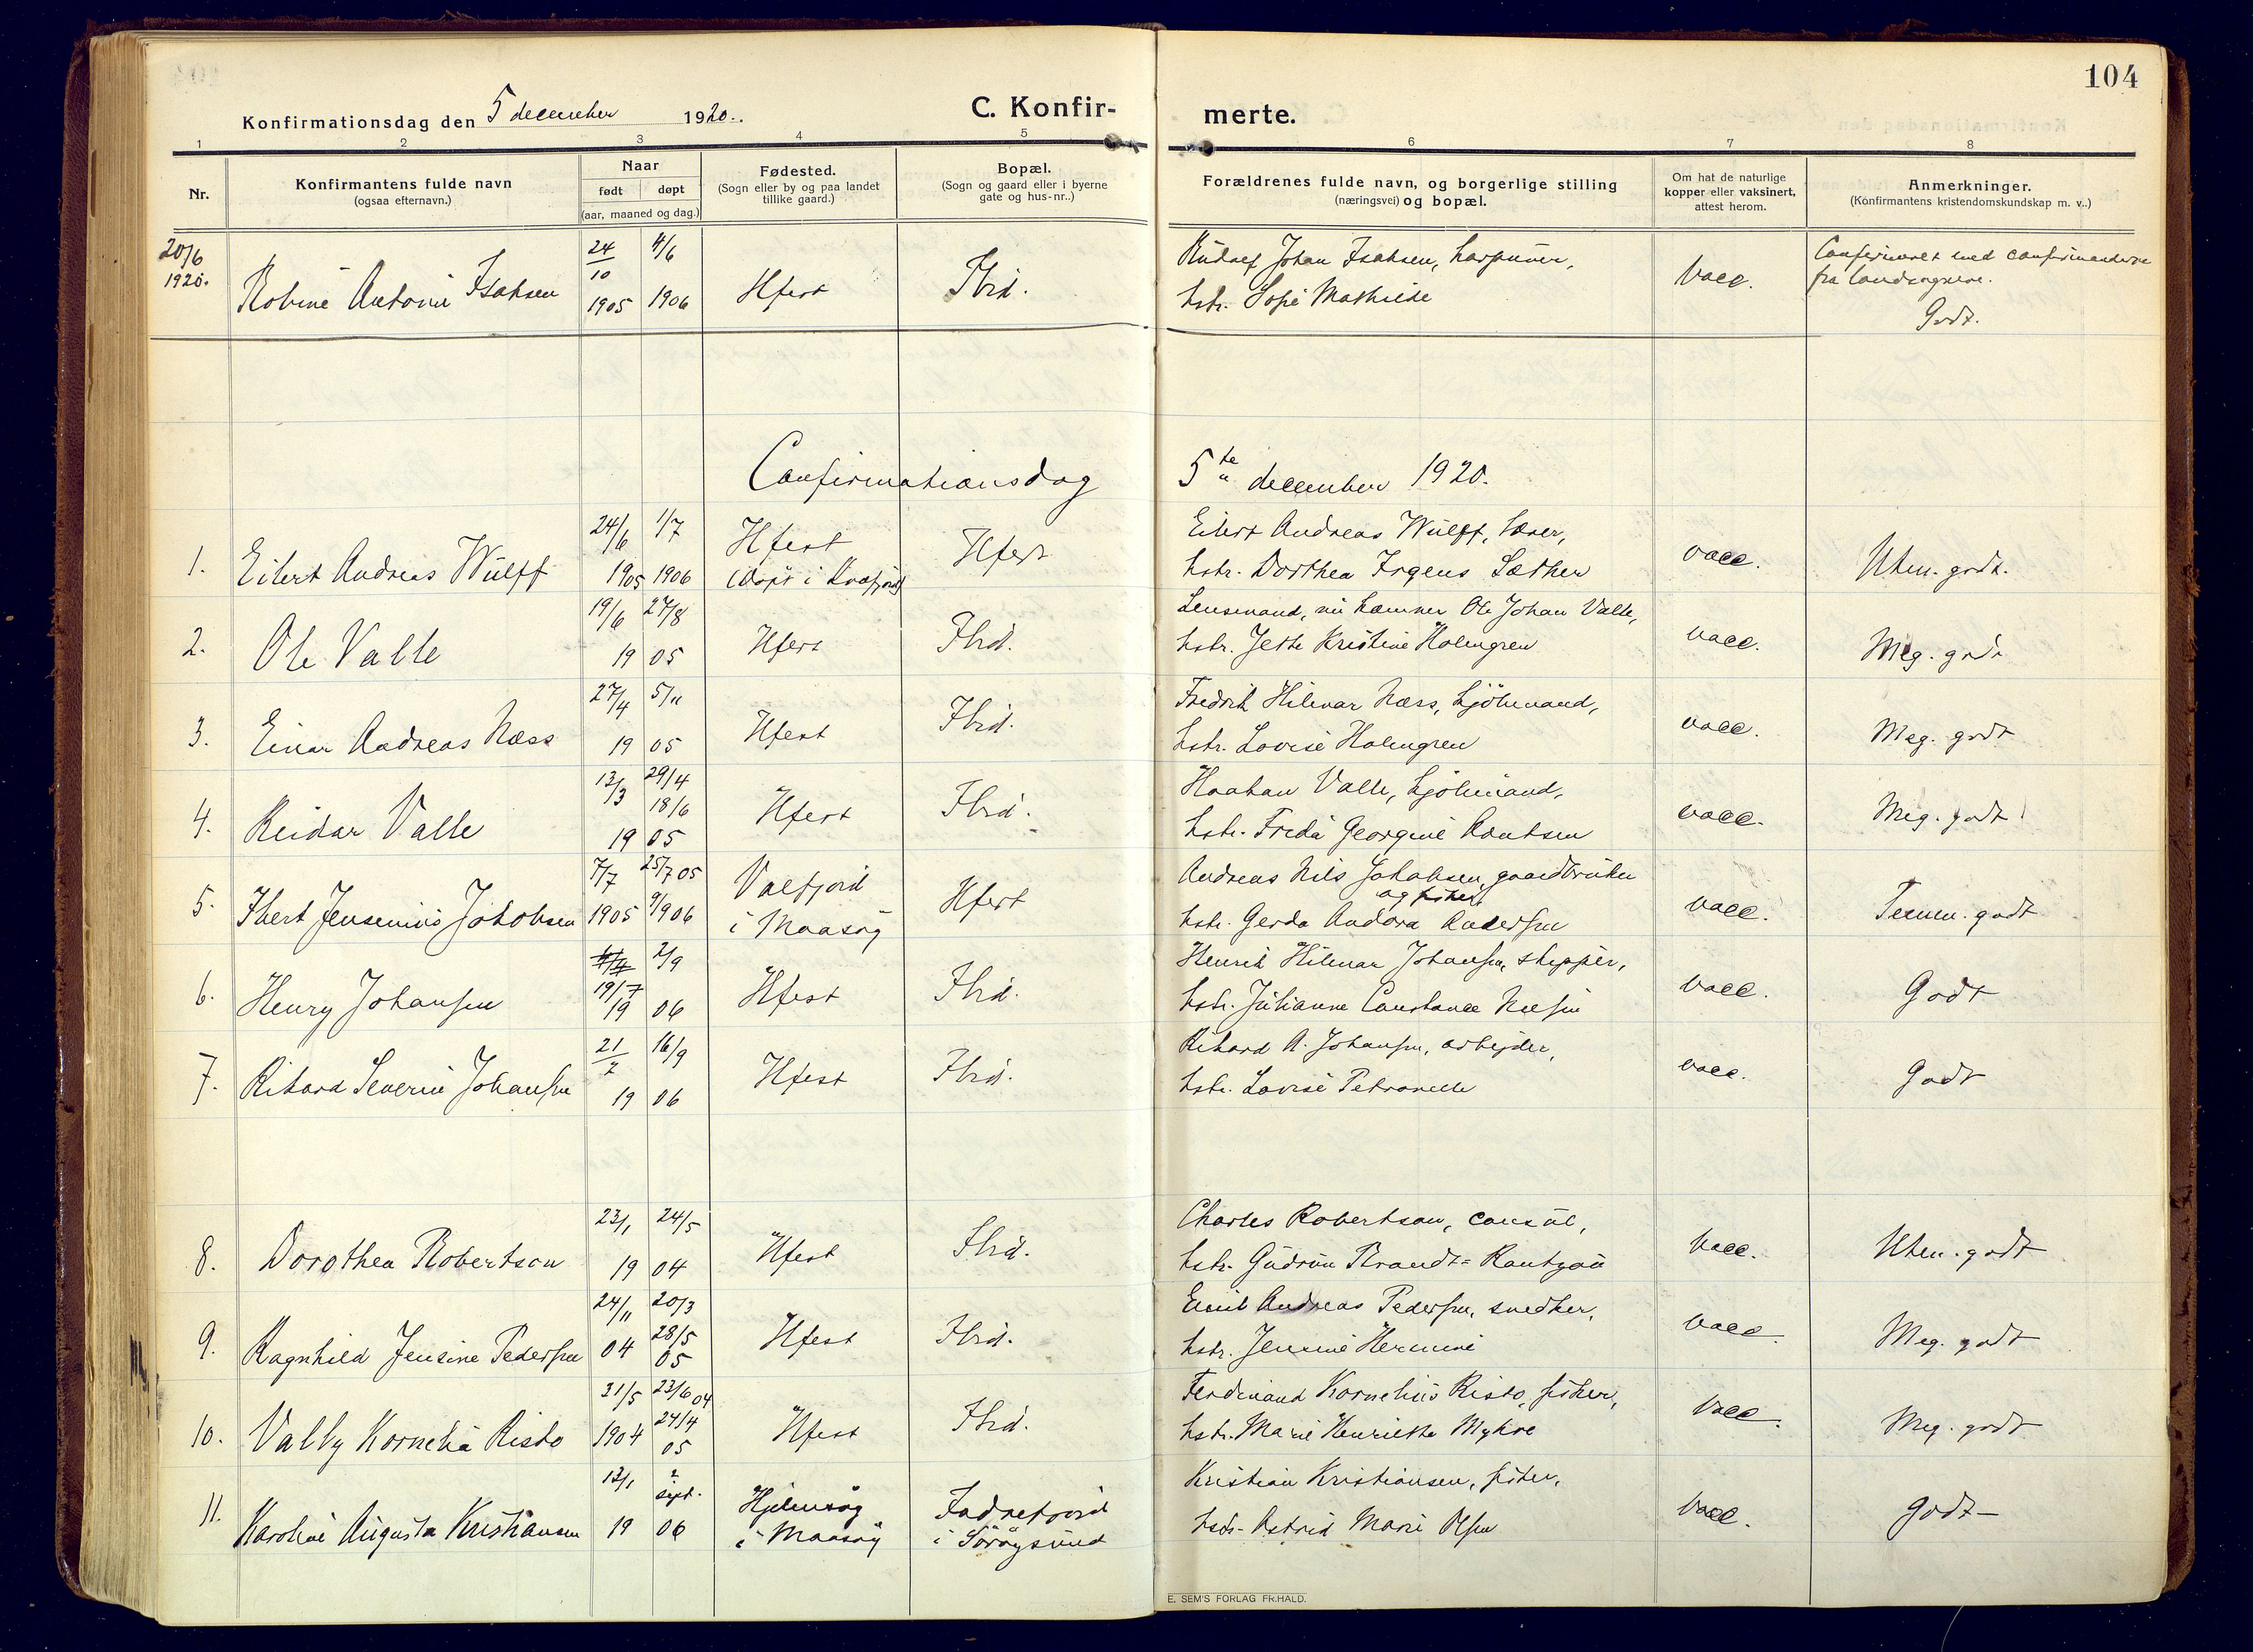 104
Konfirmationsdag den 5 december 1920.
C. Konfir-
merte.
1 2 3 4 5 6 7 8
Nr.
Konfirmantens fulde navn
(ogsaa efternavn.)
Naar
født døpt
(aar, maaned og dag.)
Fødested.
(Sogn eller by og paa landet
tillike gaard.)
Bopæl.
(Sogn og gaard eller i byerne
gate og hus-nr..)
Forældrenes fulde navn, og borgerlige stilling
(næringsvei) og bopæl.
Om hat de naturlige
kopper eller vaksinert,
attest herom.
Anmerkninger.
(Konfirmantens kristendomskundskap m. v..)
20/6
1920.
Robine Antonie Isaksen
24/10 1905
4/6 1906
Hfest
Ibid.
Rudolf Johan Isaksen, harpuner,
hstr. Sofie Mathilde
Vacc.
Confirmeret med confirmanderne
fra landsognene.
Godt.
Confirmationsdag
5te december 1920.
1.
Eilert Andreas Wulff
24/6 1905
1/7 1906
Hfest
(døpt i Kvæfjord)
Hfest
Eilert Andreas Wulff, lærer,
hstr. Dorthea Irgens Sæther
vacc.
Utm. godt.
2.
Ole Valle
19/6 27/8
19 05
Hfest
Ibid.
Lensmand, nu kæmner Ole Johan Valle,
hstr. Jette Kristine Holmgren
vacc.
Meg. godt
3.
Einar Andreas Næss
27/4 5/11
19 05
Hfest
Ibid.
Fredrik Hilmar Næss, sjømand,
hstr. Lovise Holmgren
vacc.
Meg. godt
4.
Reidar Valle
13/3 29/4
18/6
19 05
Hfest
Ibid.
Haakan Valle, sjømand,
hstr. Freda Georgine
vacc.
Meg. godt
5.
Jensenius Jakobsen
7/7 1905
25/7 05
9/9 06
i Maasøy
Hfest
Andreas Nils Jakobsen, gaardbruker
og fisker,
hstr. Gerda Andora Andersen
vacc.
Temm. godt
6.
Henry Johansen
19/7 2/9
19 06
Hfest
Ibid.
Henrik Hilmar Johansen, skipper,
hstr. Julianne Constance
vacc.
Godt
7.
Rikard Severin Johansen
21/2 16/9
19 06
Hfest
Ibid.
Rikard A. Johansen, arbejder,
hstr. Lovise Petronelle
vacc.
Godt
8.
Dorothea Robertson
23/1 24/5
19 04
Hfest
Ibid.
Charles Robertson, consul,
hstr. Gudrun Brandt-Rantzau
Vacc.
Utm. godt
9.
Ragnhild Jensine Pedersen
24/11 04
20/3
28/5 05
Hfest
Ibid.
Emil Andreas Pedersen, snedker,
hstr. Jensine Hermine
Vacc.
Meg. godt
10.
Valby Kornelia Risto
31/5 1904
23/6 04
24/4 05
Hfest
Ibid.
Ferdinand Kornelius Risto, fisker,
hstr. Marie Henriette
Vacc.
Meg. godt
11.
Karoline Augusta Kristiansen
13/1 2 sept.
19 06
Hjelmsøy
i Maasøy
i Sørøysund
Kristian Kristiansen, fisker,
hstr. Astrid Marie Olsen
Vacc.
Godt
E. SEM'S FORLAG FR.HALD.